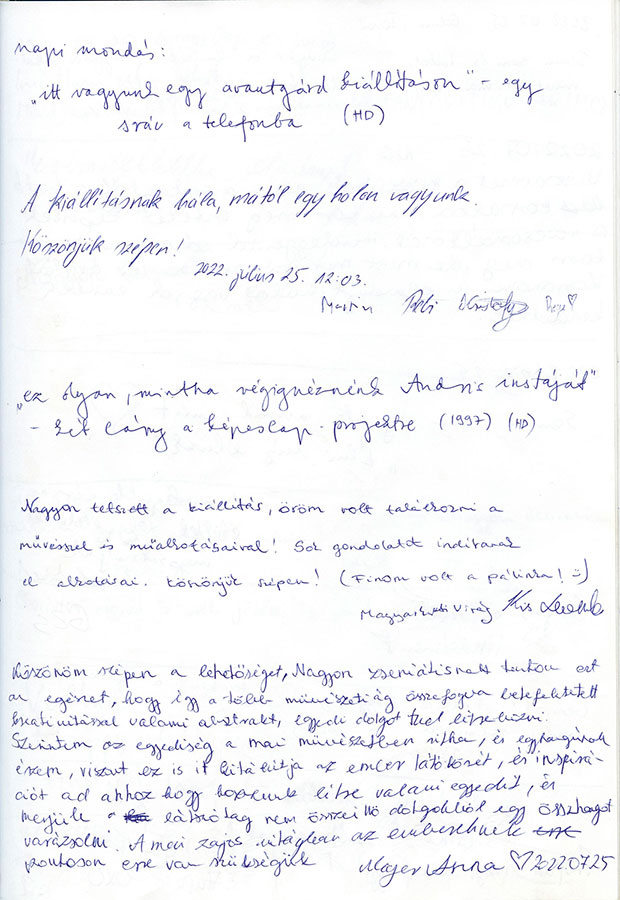 napi mondás:
"itt vagyunk egy avantgárd kiállításon" - egy
srác a telefonba (HD)
A kiállításnak hála, mától egy holon vagyunk.
Köszönjük szépen!
2022. július 25. 12:03.
Martin Kristóf
"ez olyan, mintha végignéznénk Andris instáját"
- két lány a képeslap-projektre (1997) (HD)
Nagyon tetszett a kiállítás, öröm volt találkozni a
művésszel és műalkotásaival! Sok gondolatot indítanak
el alkotásai. Köszönjük szépen! (Finom volt a pálinka! :))
Virág Kiss Levente
Köszönöm szépen a lehetőséget, Nagyon zseniálisnak tartom ezt
az egészet, hogy így a több művészeti ág összefogva
kreativitással valami absztrakt, egyedi dolgot tud létrehozni.
Szerintem az egyediség a mai művészetben ritka, és egyhangúnak
érzem, viszont ez is itt kitákítja az ember látókörét, és inspirá-
ciót ad ahhoz hogy hozzunk létre valami egyedit, és
merjünk a látszólag nem összeillő dolgokból egy összhangot
varázsolni. A mai zajos világban az embereknek
pontosan erre van szükségük
Majer Anna ♡ 2022.07.25